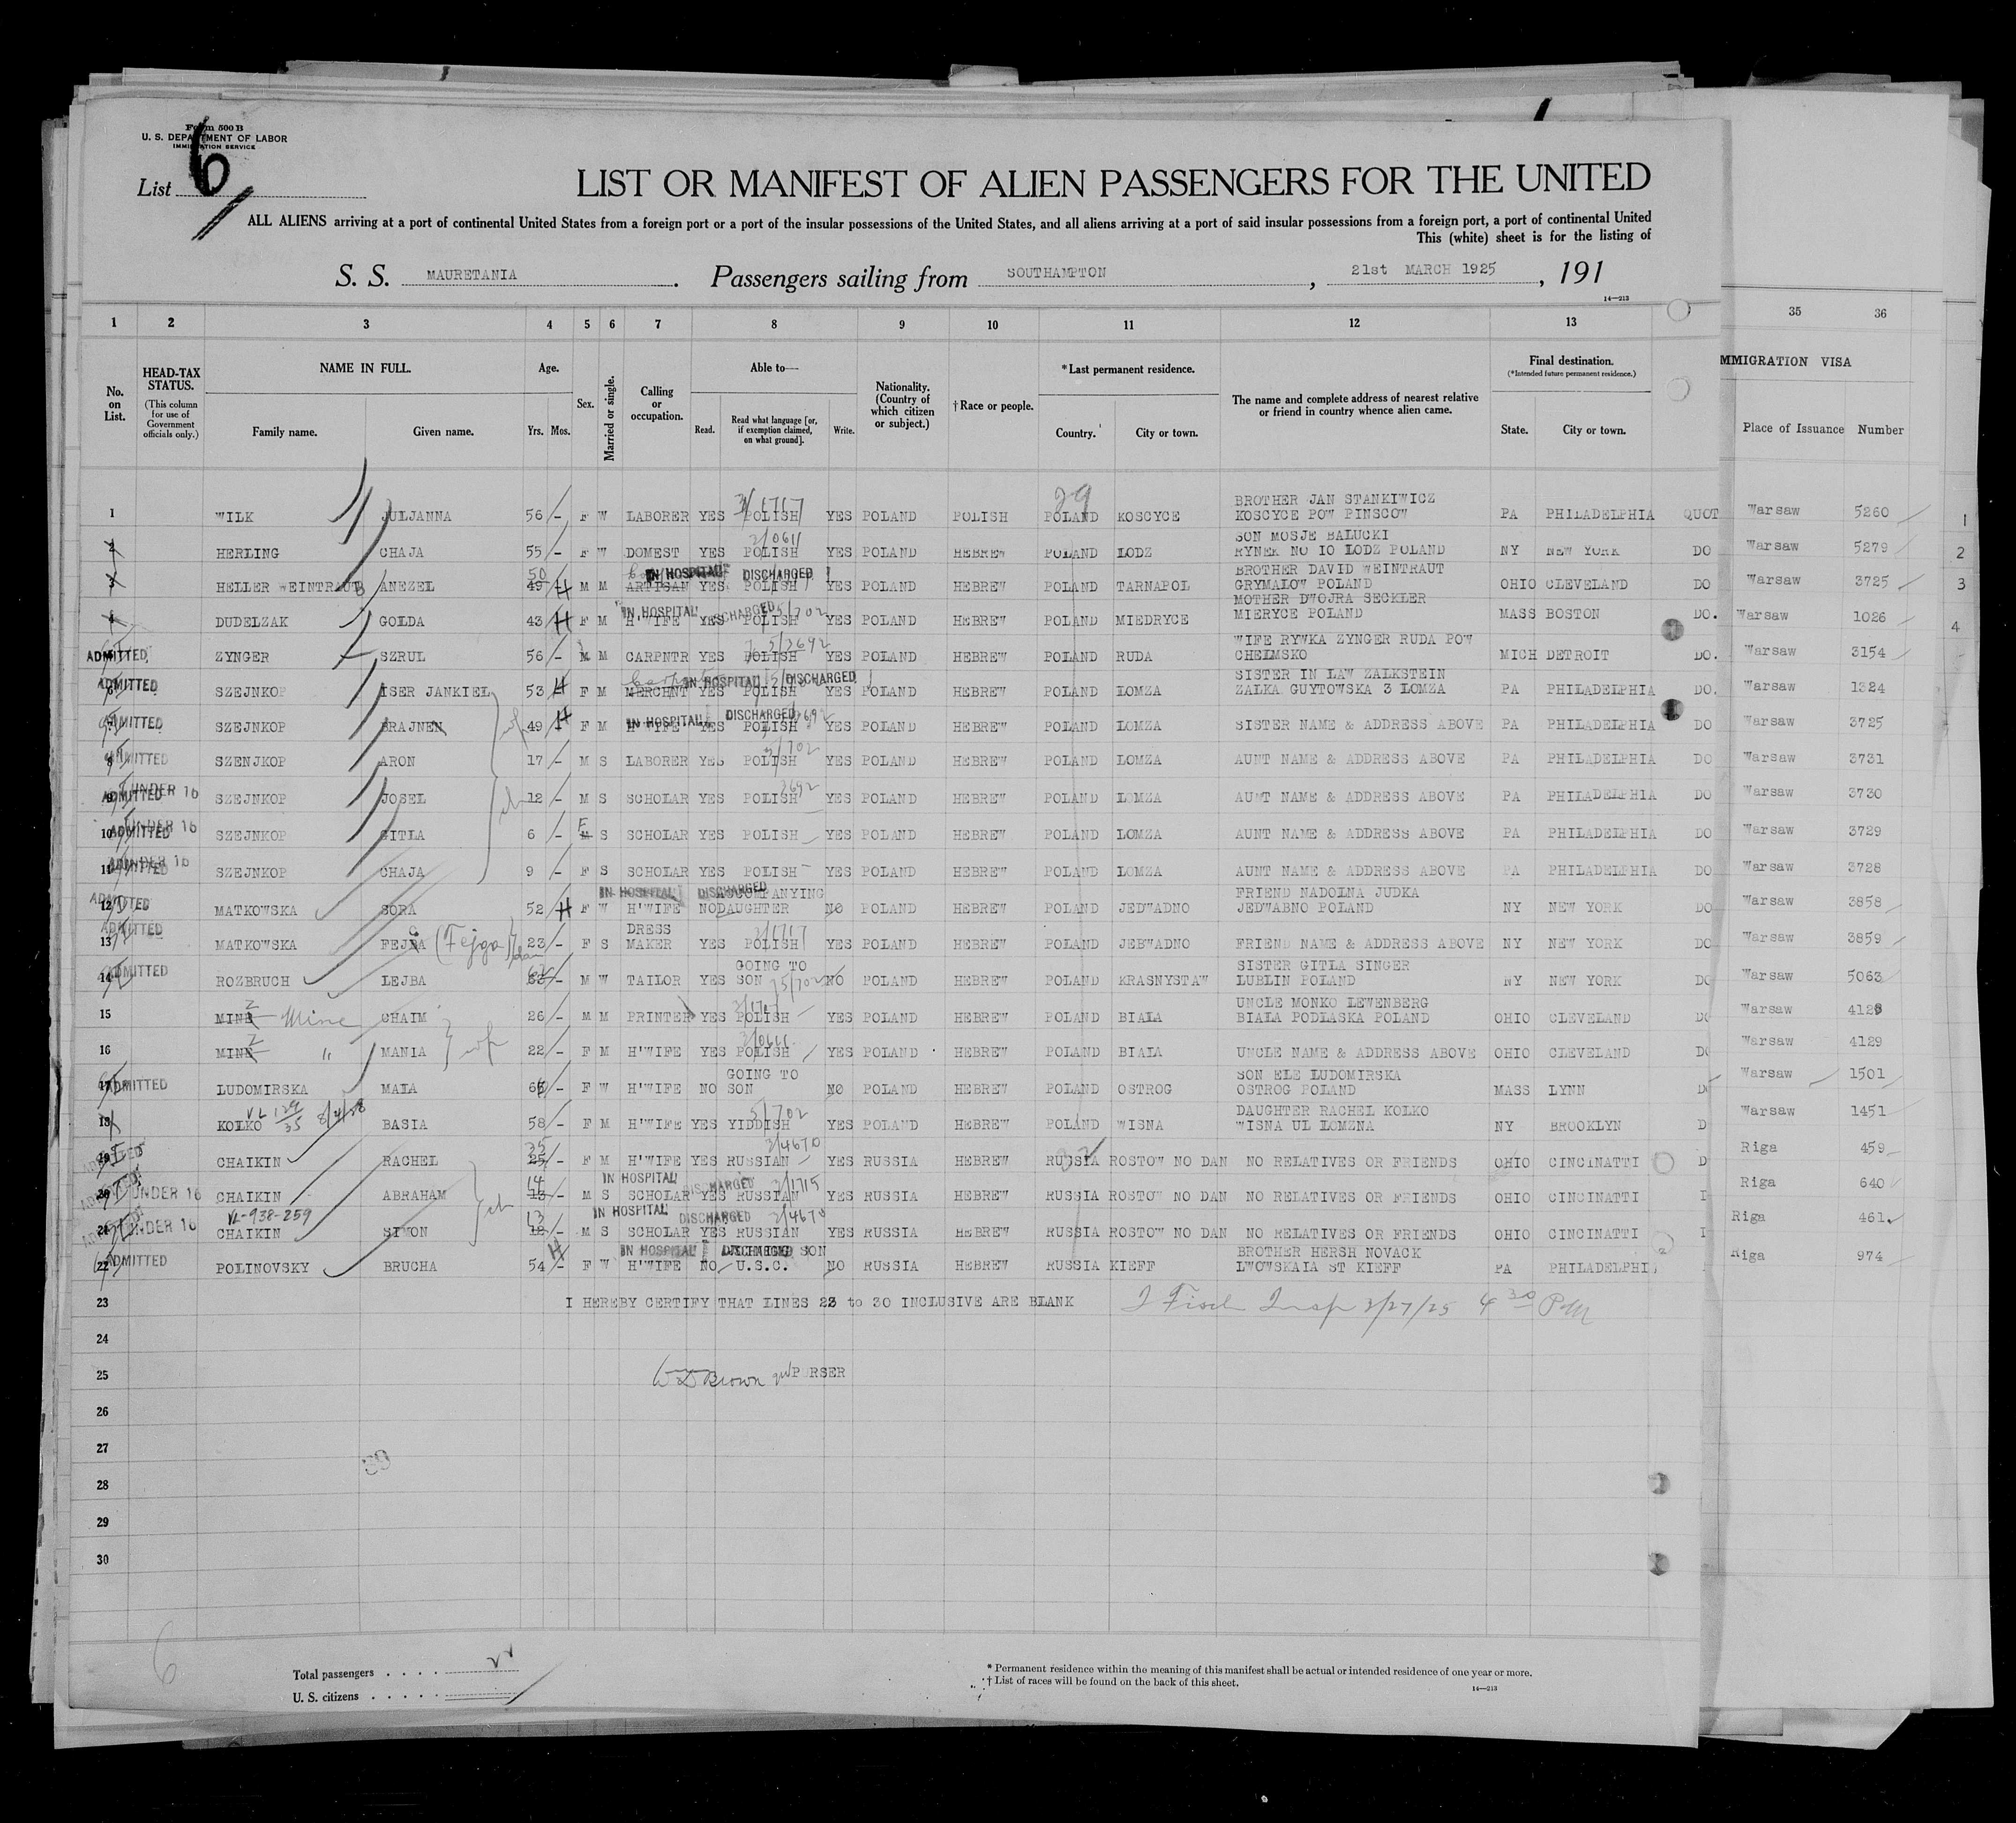 Form 500 B
U. S. DEPARTMENT OF LABOR
IMMIGRATION SERVICE
List 6
LIST OR MANIFEST OF ALIEN PASSENGERS FOR THE UNITED
ALL ALIENS arriving at a port of continental United States from a foreign port or a port of the insular possessions of the United States, and all aliens arriving at a port of said insular possessions from a foreign port, a port of continental United
This (white) sheet is for the listing of
S. S. MAURETANIA. Passengers sailing from SOUTHAMPTON, 21st MARCH 1925, 191
14—213
1 2 3 4 5 6 7 8 9 10 11 12 13 35 36
No. on List.
HEAD-TAX STATUS.
(This column for use of Government officials only.)
NAME IN FULL.
Family name. Given name.
Age.
Yrs. Mos.
Sex.
Married or single.
Calling or occupation.
Able to—
Read. Read what language [or, if exemption claimed, on what ground]. Write.
Nationality. (Country of which citizen or subject.)
† Race or people.
* Last permanent residence.
Country. City or town.
The name and complete address of nearest relative or friend in country whence alien came.
Final destination.
(*Intended future permanent residence.)
State. City or town.
MMIGRATION VISA
Place of Issuance Number
BROTHER JAN STANKIWICZ
1 WILK JULJANNA 56 - F W LABORER YES POLISH YES POLAND POLISH POLAND KOSCYCE KOSCYCE POW PINSCOW PA PHILADELPHIA QUOT Warsaw 5260 1
SON MOSJE BALUCKI
2 HERLING CHAJA 55 - F W DOMEST YES POLISH YES POLAND HEBREW POLAND LODZ RYNEK NO IO LODZ POLAND NY NEW YORK DO Warsaw 5279 2
50 IN HOSPITAL DISCHARGED BROTHER DAVID WEINTRAUT
3 HELLER WEINTRAUB ANEZEL 49 H M M ARTISAN YES POLISH YES POLAND HEBREW POLAND TARNAPOL GRYMALOW POLAND OHIO CLEVELAND DO Warsaw 3725 3
IN HOSPITAL DISCHARGED MOTHER DWOJRA SECKLER
4 DUDELZAK GOLDA 43 H F M H'WIFE YES POLISH YES POLAND HEBREW POLAND MIEDRYCE MIERYCE POLAND MASS BOSTON DO. Warsaw 1026 4
WIFE RYWKA ZYNGER RUDA POW
ADMITTED ZYNGER SZRUL 56 - M M CARPNTR YES POLISH YES POLAND HEBREW POLAND RUDA CHELMSKO MICH DETROIT DO. Warsaw 3154
IN HOSPITAL DISCHARGED SISTER IN LAW ZALKSTEIN
6 ADMITTED SZEJNKOP ISER JANKIEL 53 H F M MERCHNT YES POLISH YES POLAND HEBREW POLAND LOMZA ZALKA GUYTOWSKA 3 LOMZA PA PHILADELPHIA DO. Warsaw 1324
IN HOSPITAL DISCHARGED
ADMITTED SZEJNKOP BRAJNEN 49 H F M H'WIFE YES POLISH YES POLAND HEBREW POLAND LOMZA SISTER NAME & ADDRESS ABOVE PA PHILADELPHIA DO Warsaw 3725
8 ADMITTED SZENJKOP ARON 17 - M S LABORER YES POLISH YES POLAND HEBREW POLAND LOMZA AUNT NAME & ADDRESS ABOVE PA PHILADELPHIA DO Warsaw 3731
9 ADMITTED UNDER 16 SZEJNKOP JOSEL 12 - M S SCHOLAR YES POLISH YES POLAND HEBREW POLAND LOMZA AUNT NAME & ADDRESS ABOVE PA PHILADELPHIA DO Warsaw 3730
10 ADMITTED UNDER 16 SZEJNKOP GITLA 6 - M F S SCHOLAR YES POLISH YES POLAND HEBREW POLAND LOMZA AUNT NAME & ADDRESS ABOVE PA PHILADELPHIA DO Warsaw 3729
11 ADMITTED UNDER 16 SZEJNKOP CHAJA 9 - F S SCHOLAR YES POLISH YES POLAND HEBREW POLAND LOMZA AUNT NAME & ADDRESS ABOVE PA PHILADELPHIA DO Warsaw 3728
IN HOSPITAL DISCHARGED ACCOMPANYING FRIEND NADOLNA JUDKA
12 ADMITTED MATKOWSKA SORA 52 H F W H'WIFE NO DAUGHTER NO POLAND HEBREW POLAND JEDWADNO JEDWABNO POLAND NY NEW YORK DO Warsaw 3858
DRESS
13 ADMITTED MATKOWSKA FEJRA (Fejga) 23 - F S MAKER YES POLISH YES POLAND HEBREW POLAND JEBWADNO FRIEND NAME & ADDRESS ABOVE NY NEW YORK DO Warsaw 3859
GOING TO SISTER GITLA SINGER
14 ADMITTED ROZBRUCH LEJBA M W TAILOR YES SON NO POLAND HEBREW POLAND KRASNYSTAW LUBLIN POLAND NY NEW YORK DO Warsaw 5063
UNCLE MONKO LEWENBERG
15 Minc CHAIM 26 - M M PRINTER YES POLISH YES POLAND HEBREW POLAND BIALA BIALA PODLASKA POLAND OHIO CLEVELAND Warsaw 4128
16 " MANIA 22 - F M H'WIFE YES POLISH YES POLAND HEBREW POLAND BIALA UNCLE NAME & ADDRESS ABOVE OHIO CLEVELAND Warsaw 4129
GOING TO SON ELE LUDOMIRSKA
17 ADMITTED LUDOMIRSKA MALA - F W H'WIFE NO SON NO POLAND HEBREW POLAND OSTROG OSTROG POLAND MASS LYNN Warsaw 1501
5/702 DAUGHTER RACHEL KOLKO
18 KOLKO BASIA 58 - F M H'WIFE YES YIDDISH YES POLAND HEBREW POLAND WISNA WISNA UL LOMZNA NY BROOKLYN D Warsaw 1451
35 2/4670
19 ADMITTED CHAIKIN RACHEL 25 - F M H'WIFE YES RUSSIAN YES RUSSIA HEBREW RUSSIA ROSTOW NO DAN NO RELATIVES OR FRIENDS OHIO CINCINATTI D Riga 459
14 IN HOSPITAL DISCHARGED 2/1715
20 UNDER 16 CHAIKIN ABRAHAM 13 - M S SCHOLAR YES RUSSIAN YES RUSSIA HEBREW RUSSIA ROSTOW NO DAN NO RELATIVES OR FRIENDS OHIO CINCINATTI Riga 640
VL-938-259 13 IN HOSPITAL DISCHARGED 2/4670
21 UNDER 16 CHAIKIN SIMON 12 - M S SCHOLAR YES RUSSIAN YES RUSSIA HEBREW RUSSIA ROSTOW NO DAN NO RELATIVES OR FRIENDS OHIO CINCINATTI Riga 461
H IN HOSPITAL DISCHARGED SON BROTHER HERSH NOVACK
22 ADMITTED POLINOVSKY BRUCHA 54 - F W H'WIFE NO U.S.C. NO RUSSIA HEBREW RUSSIA KIEFF LWOWSKAIA ST KIEFF PA PHILADELPHI Riga 974
23 I HEREBY CERTIFY THAT LINES 23 to 30 INCLUSIVE ARE BLANK Insp 3/27/25 4 30 PM
24
25 Brown PURSER
26
27
28
29
30
6
Total passengers . . . .
U. S. citizens . . . . .
* Permanent residence within the meaning of this manifest shall be actual or intended residence of one year or more.
† List of races will be found on the back of this sheet.
14—213